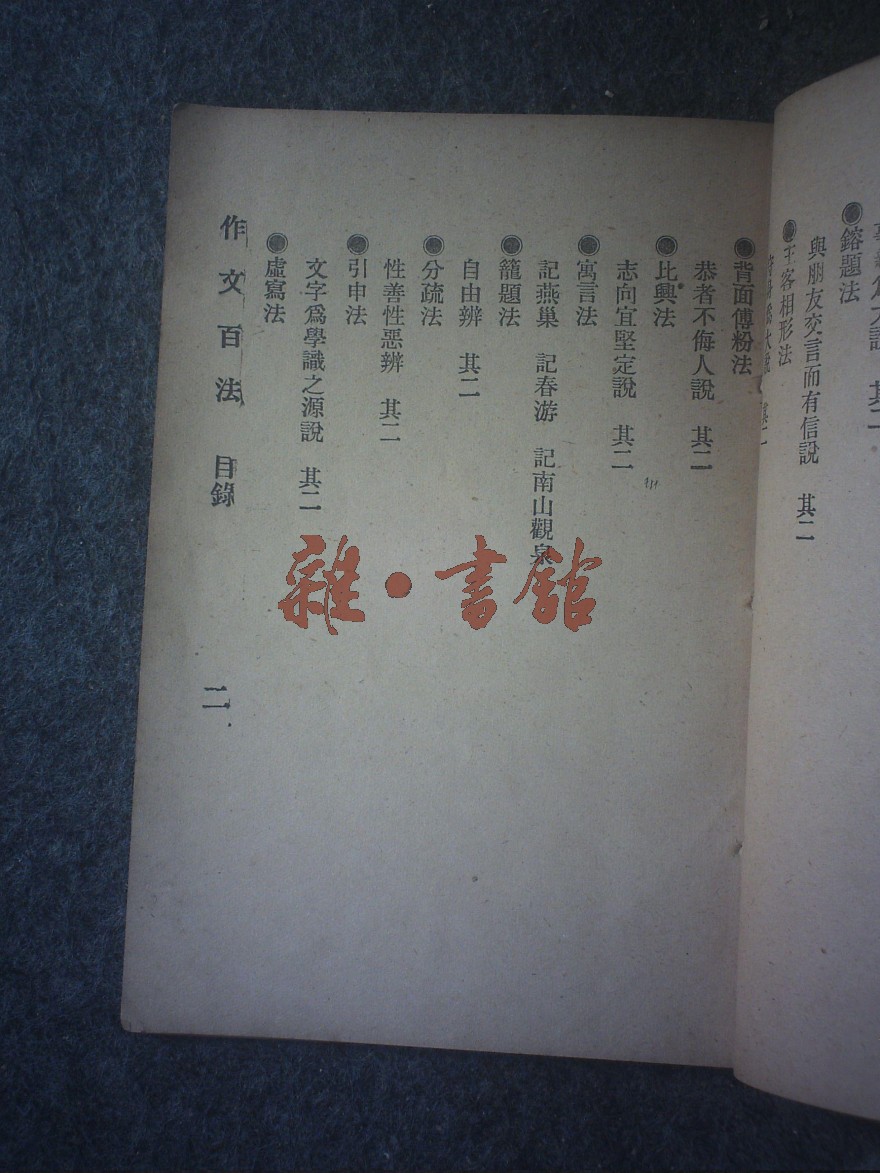 ●鎔題法
與朋友交言而有信說　其二
●主客相形法
其二
●背面傅粉法
恭者不侮人說　其二
●比興法
志向宜堅定說　其二
●寓言法
記燕巢　記春游　記南山觀泉
●籠題法
自由辨　其二
●分疏法
性善性惡辨　其二
●引申法
文字爲學識之源說　其二
●虛寫法
作文百法　目錄　二
雜·書館